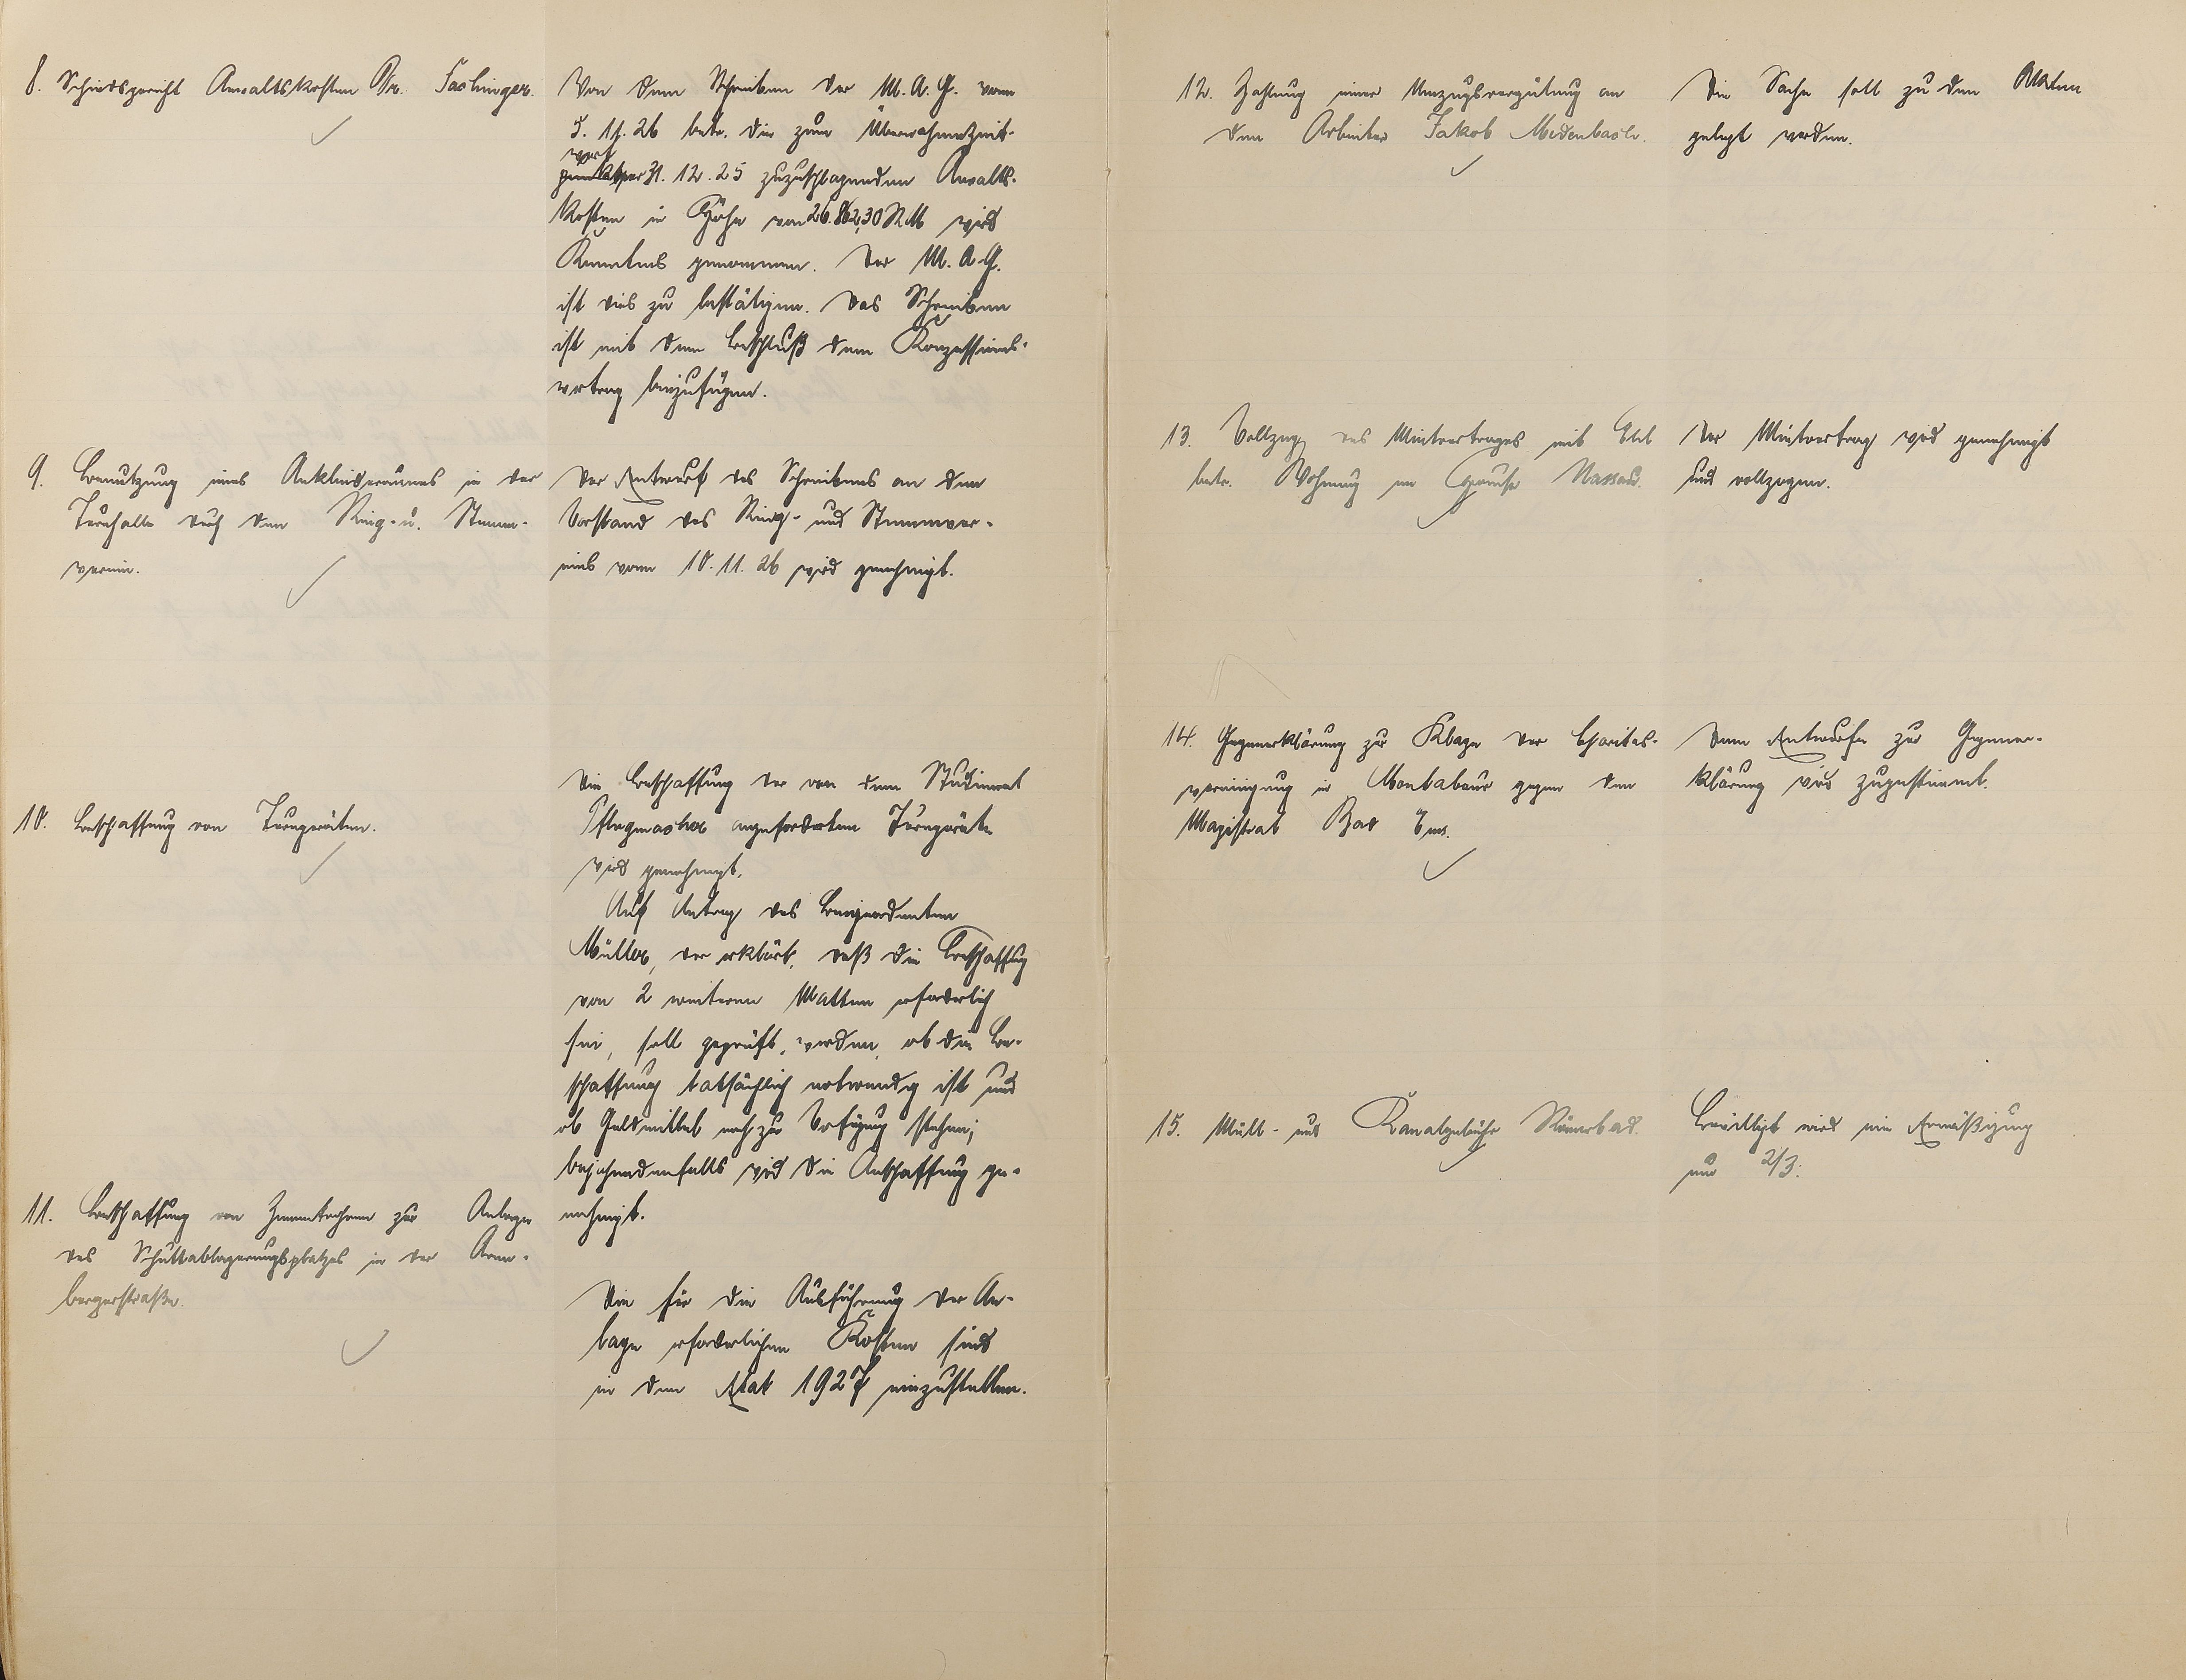 8. Schiedsgericht Anwaltskosten Dr. Faslinger.
Von dem Schreiben der M.A.G. vom
5. 11. 26 betr. die zum Übernahmezeit-
wert
per 31. 12. 25 zuzuschlagenden Anwalts-
kosten in Höhe von 26.862,30 RM wird
Kenntnis genommen. Der M.A.G.
ist dies zu bestätigen. Das Schreiben
ist mit dem Beschluß dem Konzessions-
vertrag beizufügen.
9. Benutzung eines Ankleideraumes in der
Turnhalle durch den Ring- u. Stemm-
verein.
Der Entwurf des Schreibens an den
Vorstand des Ring- und Stemmver-
eins vom 10. 11. 26 wird genehmigt.
10. Beschaffung von Turngeräten.
Die Beschaffung der von dem Studienrat
Pflugmacher angeforderten Turngeräte
wird genehmigt.
Auf Antrag des Beigeordneten
Müller, der erklärt, daß die Beschaffung
von 2 weiteren Matten erforderlich
sei, soll geprüft werden, ob die Be-
schaffung tatsächlich notwendig ist und
ob Geldmittel noch zur Verfügung stehen;
bejahendenfalls wird die Anschaffung ge-
nehmigt.
11. Beschaffung von Zementrohren zur Anlage
des Schuttablagerungsplatzes in der Arn-
bergerstraße.
Die für die Ausführung der An-
lage erforderlichen Kosten sind
in den Etat 1927 einzustellen.
12. Zahlung einer Umzugsvergütung an
den Arbeiter Jakob Medenbach.
Die Sache soll zu den Akten
gelegt werden.
13. Vollzug des Mietvertrages mit Ebel
betr. Wohnung im Hause Nassau.
Der Mietvertrag wird genehmigt
und vollzogen.
14. Gegenerklärung zur Klage der Charitas-
vereinigung in Montabaur gegen den
Magistrat Bad Ems.
Dem Entwurfe zur Gegener-
klärung wird zugestimmt.
15. Müll- und Kanalgebühr Römerbad.
Bewilligt wird eine Ermäßigung
um 2/3.